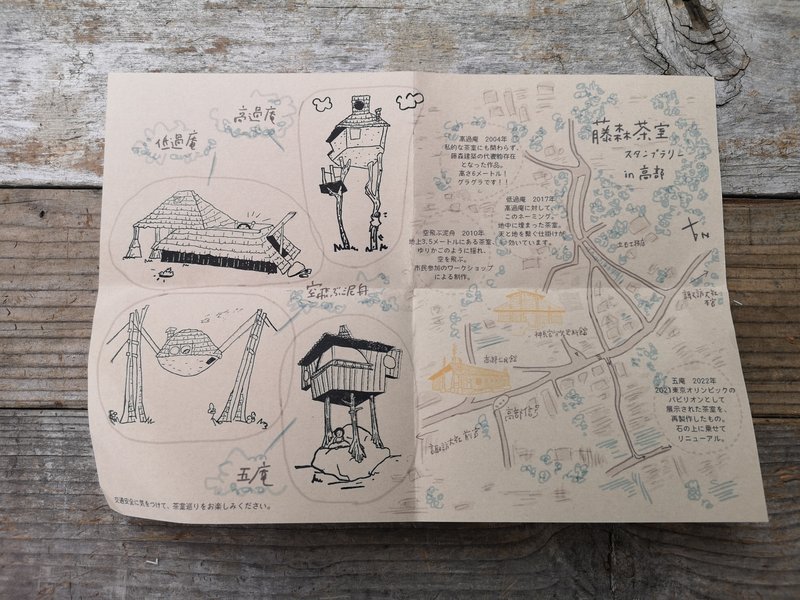 高過庵
低過庵
空飛ぶ泥舟
五庵
交通安全に気をつけて、茶室巡りをお楽しみください。
藤森茶室
スタンプラリー
in 高部
高過庵 2004年
私的な茶室にも関わらず、
藤森建築の代表的存在
となった作品。
高さ6メートル！
グラグラです！！
低過庵 2017年
高過庵に対して、
このネーミング。
地中に埋まった茶室。
天と地を繋ぐ仕掛けが
効いています。
空飛ぶ泥舟 2010年
地上3.5メートルにある茶室、
ゆりかごのように揺れ、
空を飛ぶ。
市民参加のワークショップ
による制作。
N
諏訪大社
本宮
神長官守矢史料館
高部公民館
諏訪大社 前宮
五庵 2022年
2021東京オリンピックの
パビリオンとして
展示された茶室を、
再製作したもの。
石の上に乗せて
リニューアル。